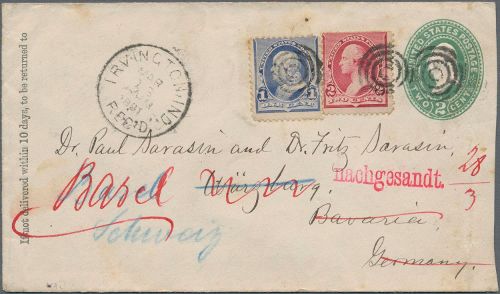 If not delivered within 10 days, to be returned to
IRVINGTON, IND.
MAR
REC'D.
1
ONE CENT
2
2
TWO CENTS
UNITED STATES POSTAGE
2
TWO CENTS
Dr. Paul Sarasin and Dr. Fritz Sarasin,
Würzburg,
nachgesandt.
28/3
Basel
Bavaria,
Schweiz
Germany.